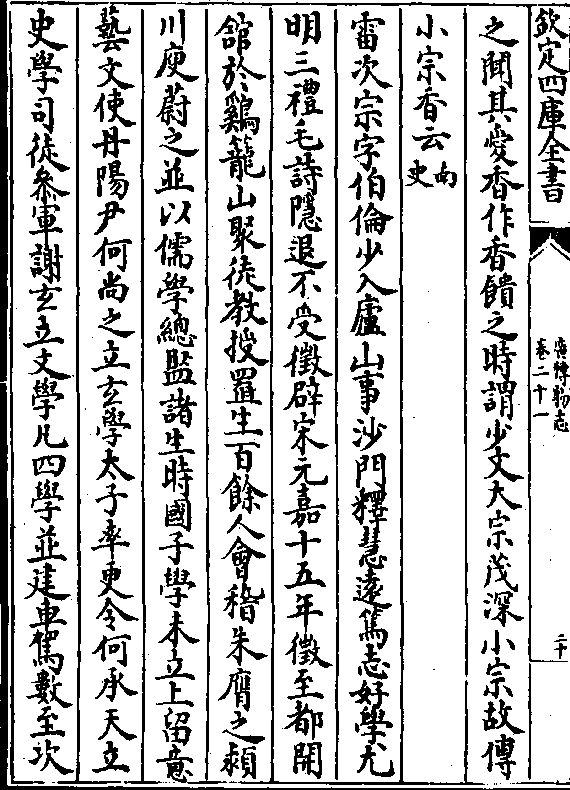 欽定四庫全書
廣博物志
卷二十一
二十
之聞其愛香作香饋之時謂少文大宗茂深小宗故傳
小宗香云南史
雷次宗字伯倫少入廬山事沙門釋慧遠篤志好學尤
明三禮毛詩隱退不受徵辟宋元嘉十五年徵至都開
舘於鷄籠山聚徒教授置生一百餘人會稽朱膺之潁
川庾蔚之並以儒學總監諸生時國子學未立上留意
藝文使丹陽尹何尚之立玄學太子率更令何承天立
史學司徒叅軍謝玄立文學凡四學並建車駕數至次